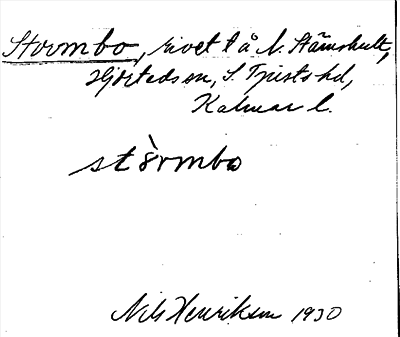 Stormbo, rivet t å N. Stämshult,
Hjorteds sn, S. Tjusts hd,
Kalmar l.
stòrmbo
Nils Henriksson 1930